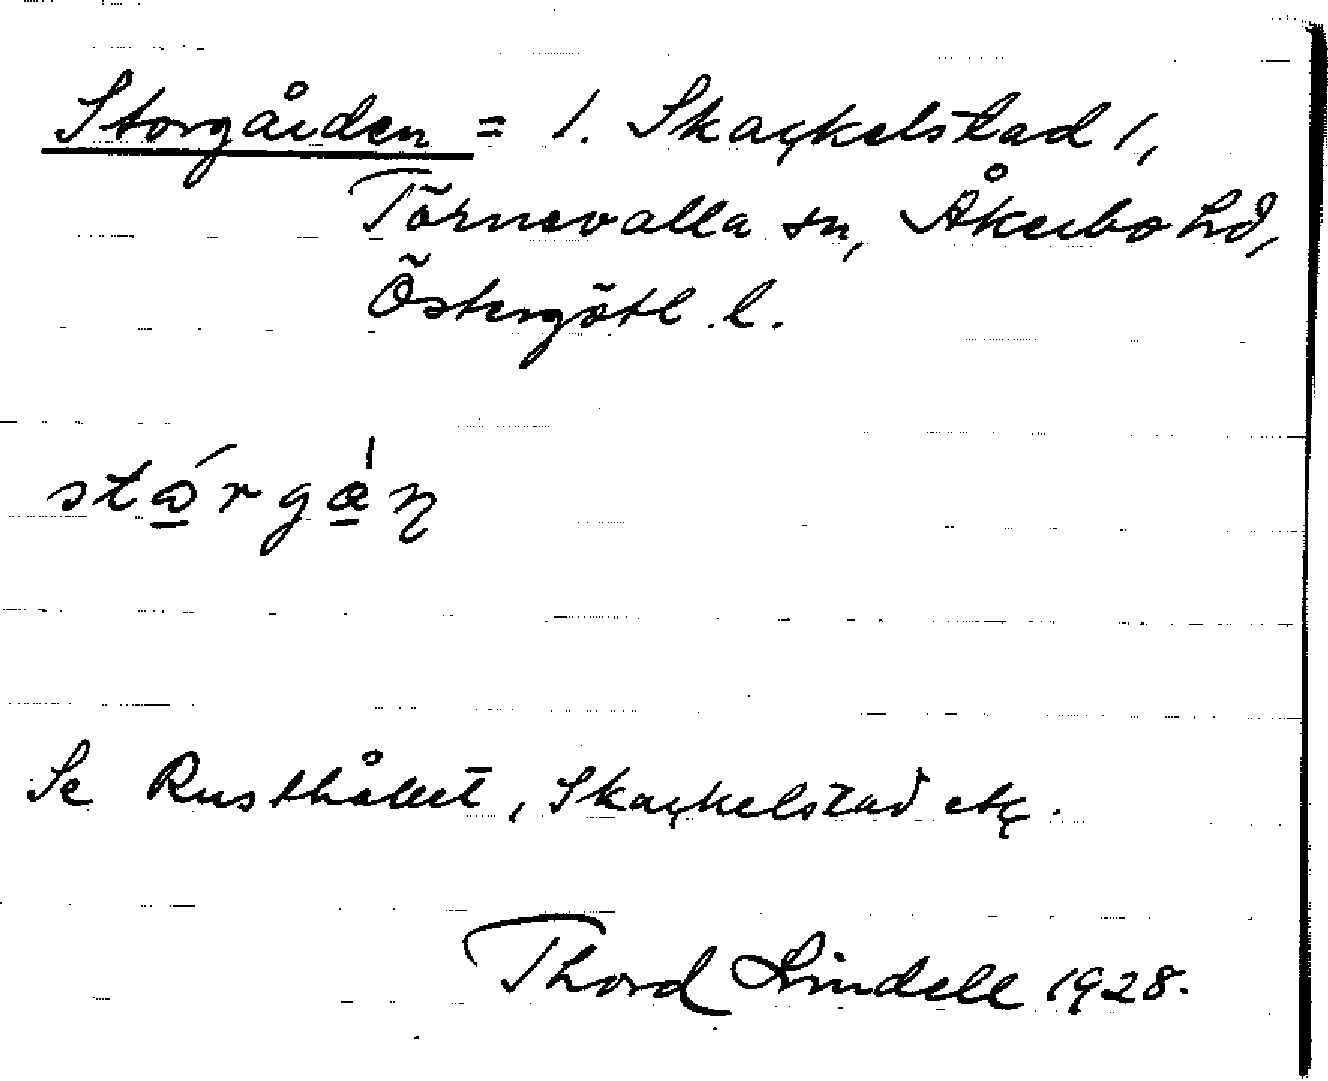 Storgården = 1. Skackelstad 1,
Törnevalla sn, Åkerbo hd,
Östergötl. l.
Se Rusthållet, Skackelstad etc.
Thord Lindell 1928.